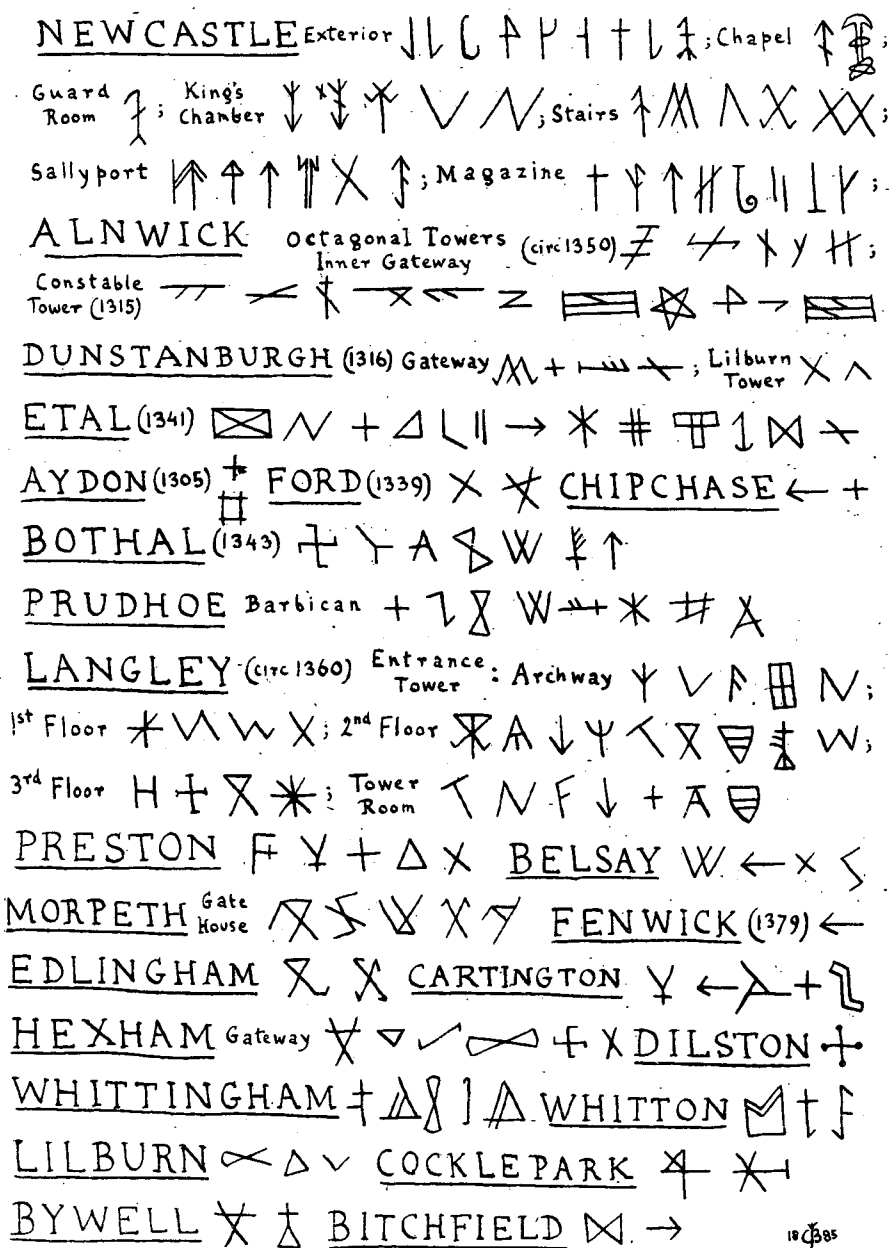 NEWCASTLE Exterior ; Chapel ;
Guard Room ; King's Chamber ; Stairs ;
Sallyport ; Magazine ;
ALNWICK Octagonal Towers Inner Gateway (circ 1350) ;
Constable Tower (1315)
DUNSTANBURGH (1316) Gateway ; Lilburn Tower
ETAL (1341)
AYDON (1305) FORD (1339) CHIPCHASE
BOTHAL (1343)
PRUDHOE Barbican
LANGLEY (circ 1360) Entrance Tower : Archway ;
1st Floor ; 2nd Floor ;
3rd Floor ; Tower Room
PRESTON BELSAY
MORPETH Gate House FENWICK (1379)
EDLINGHAM CARTINGTON
HEXHAM Gateway DILSTON
WHITTINGHAM WHITTON
LILBURN COCKLEPARK
BYWELL BITCHFIELD
18 85